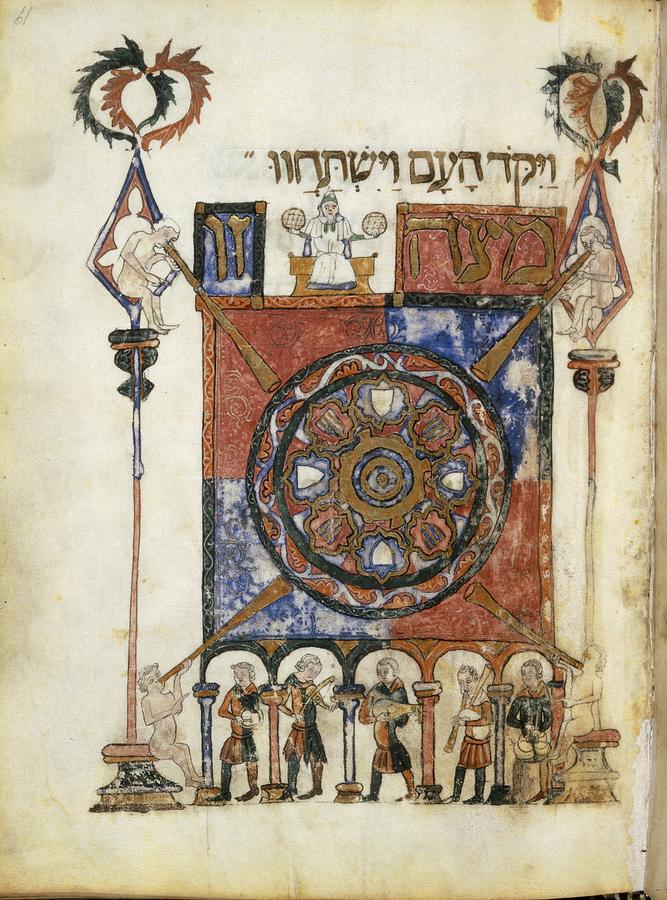 61
וַיִּקֹד הָעָם וַיִּשְׁתַּחֲווּ ״
מצה זו